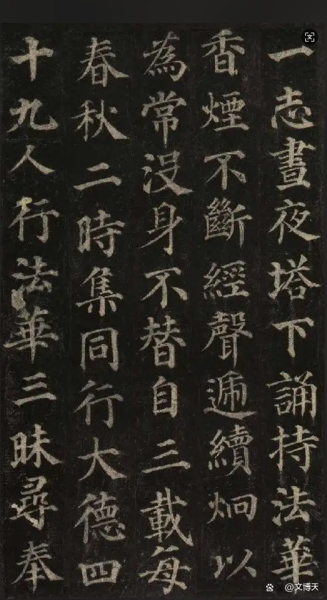 一志晝夜塔下誦持法華
香煙不斷經聲遞續炯以
為常没身不替自三載每
春秋二時集同行大德四
十九人行法華三昧尋奉
@文博天